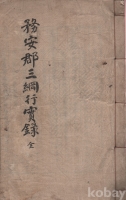 務安郡三綱行實錄 全
Bargain books